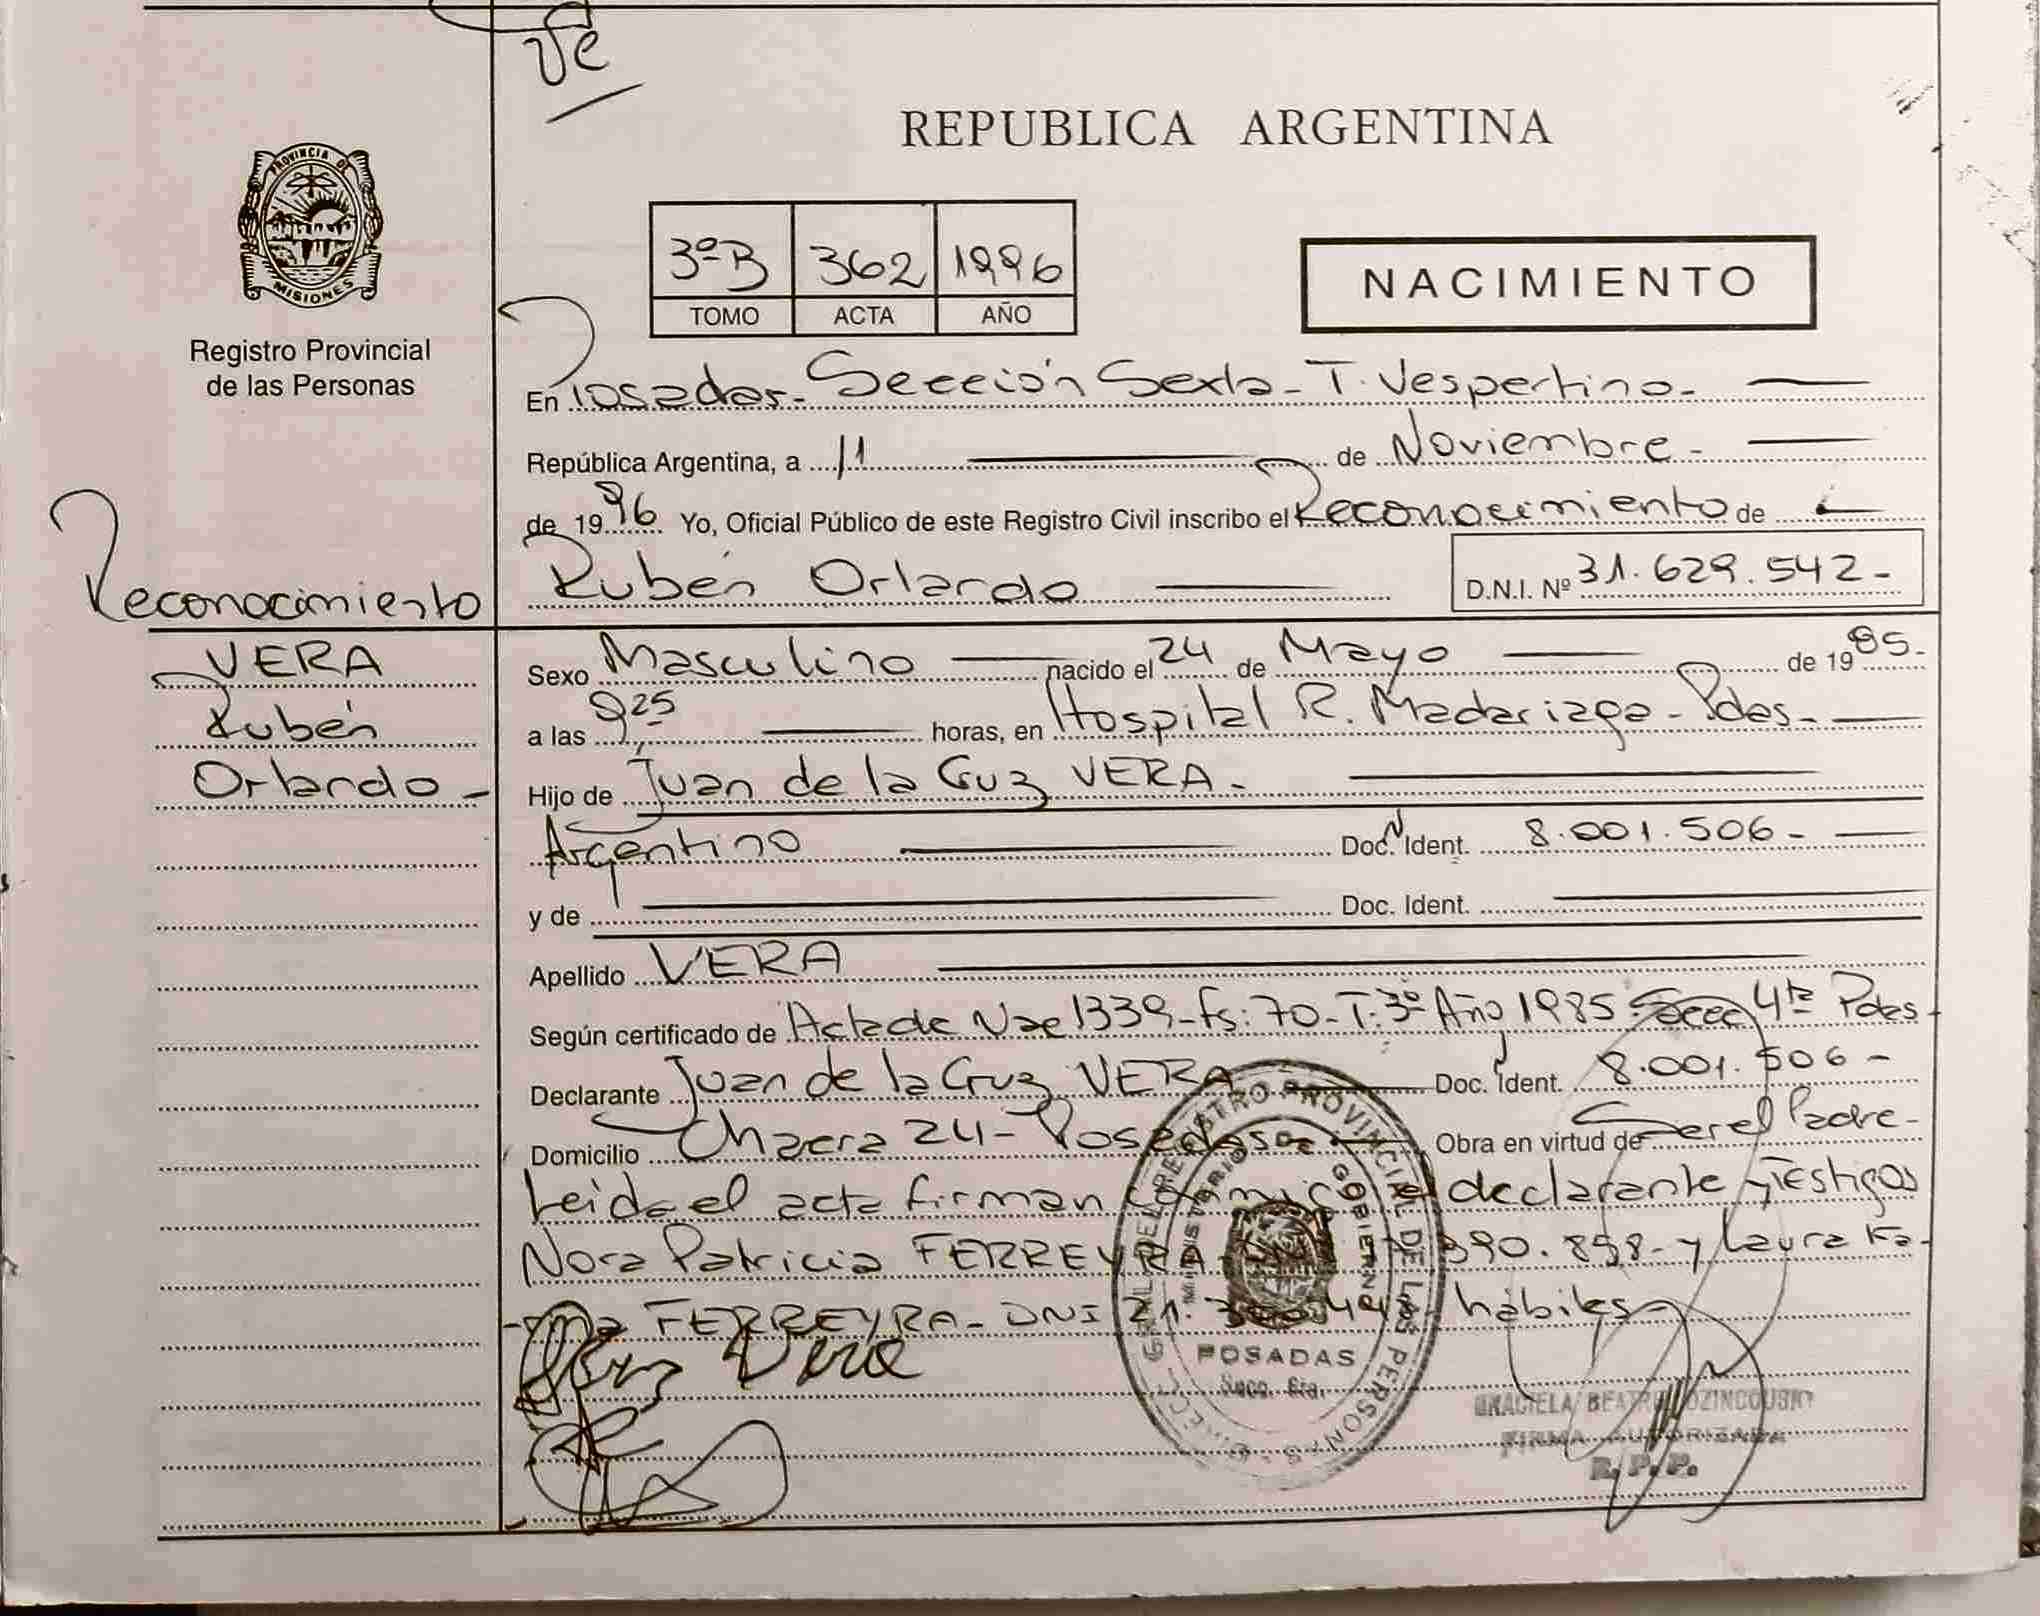 REPUBLICA ARGENTINA
PROVINCIA DE
MISIONES
Registro Provincial
de las Personas
3ºB 362 1996
TOMO ACTA AÑO
NACIMIENTO
En Posadas - Sección Sexta - T. Vespertino -
República Argentina, a 11 de Noviembre -
de 1996 Yo, Oficial Público de este Registro Civil inscribo el Reconocimiento de
Rubén Orlando D.N.I. Nº 31.629.542 -
Reconocimiento
VERA
Rubén
Orlando -
Sexo Masculino nacido el 24 de Mayo de 1985 -
a las 9,25 horas, en Hospital R. Madariaga - Pdas -
Hijo de Juan de la Cruz VERA -
Argentino Doc. Ident. 8.001.506 -
y de Doc. Ident.
Apellido VERA
Según certificado de Acta de Nac 1339 - Fs: 70 - T: 3º Año 1985 Secc 4ta Pdas -
Declarante Juan de la Cruz VERA Doc. Ident. 8.001.506 -
Domicilio Chacra 24 - Posadas Obra en virtud de Ser el Padre -
Leida el acta firman conmigo el declarante y Testigos
Nora Patricia FERREYRA 390.898 - y Laura Fa-
FERREYRA - DNI 21. hábiles -
Vera
REGISTRO PROVINCIAL DE LAS PERSONAS
MINISTERIO DE GOBIERNO
POSADAS
Secc. 6ta.
GRACIELA
FIRMA AUTORIZADA
R.P.P.